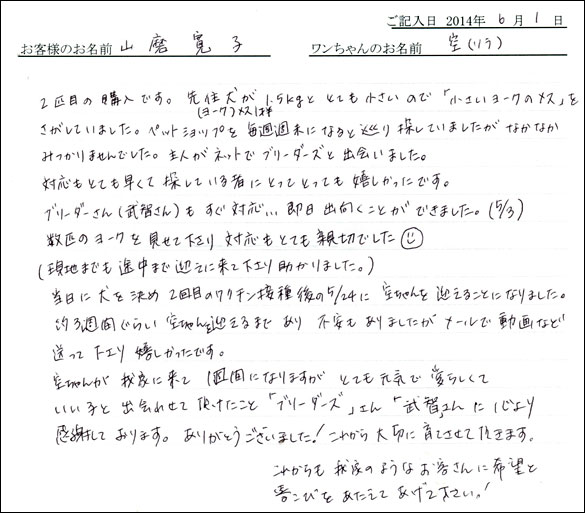 ご記入日 2014年 6月 1日
お客様のお名前 山磨 寛子 ワンちゃんのお名前 空(ソラ)
2匹目の購入です。先住犬が1.5kgととても小さいので「小さいヨークのメス」を
(ヨーク)メス1才
さがしていました。ペットショップを毎週週末になると巡り探していましたがなかなか
みつかりませんでした。主人がネットでブリーダーズと出会いました。
対応もとても早くて探している者にとってとっても嬉しかったです。
ブリーダーさん(武智さん)もすぐ対応… 即日出向くことができました。(5/3)
数匹のヨークを見せて下さり対応もとても親切でした☺
(現地までも途中まで迎えに来て下さり助かりました。)
当日に犬を決め2回目のワクチン接種後の5/24に空ちゃんを迎えることになりました。
約3週間ぐらい空ちゃんを迎えるまであり不安もありましたがメールで動画など
送って下さり嬉しかったです。
空ちゃんが我家に来て1週間になりますがとても元気で愛らしくて
いい子と出会わせて頂けたこと「ブリーダーズ」さん「武智」さんに心より
感謝しております。ありがとうございました!これから大切に育てさせて頂きます。
これからも我家のようなお客さんに希望と
喜こびをあたえてあげて下さい。!